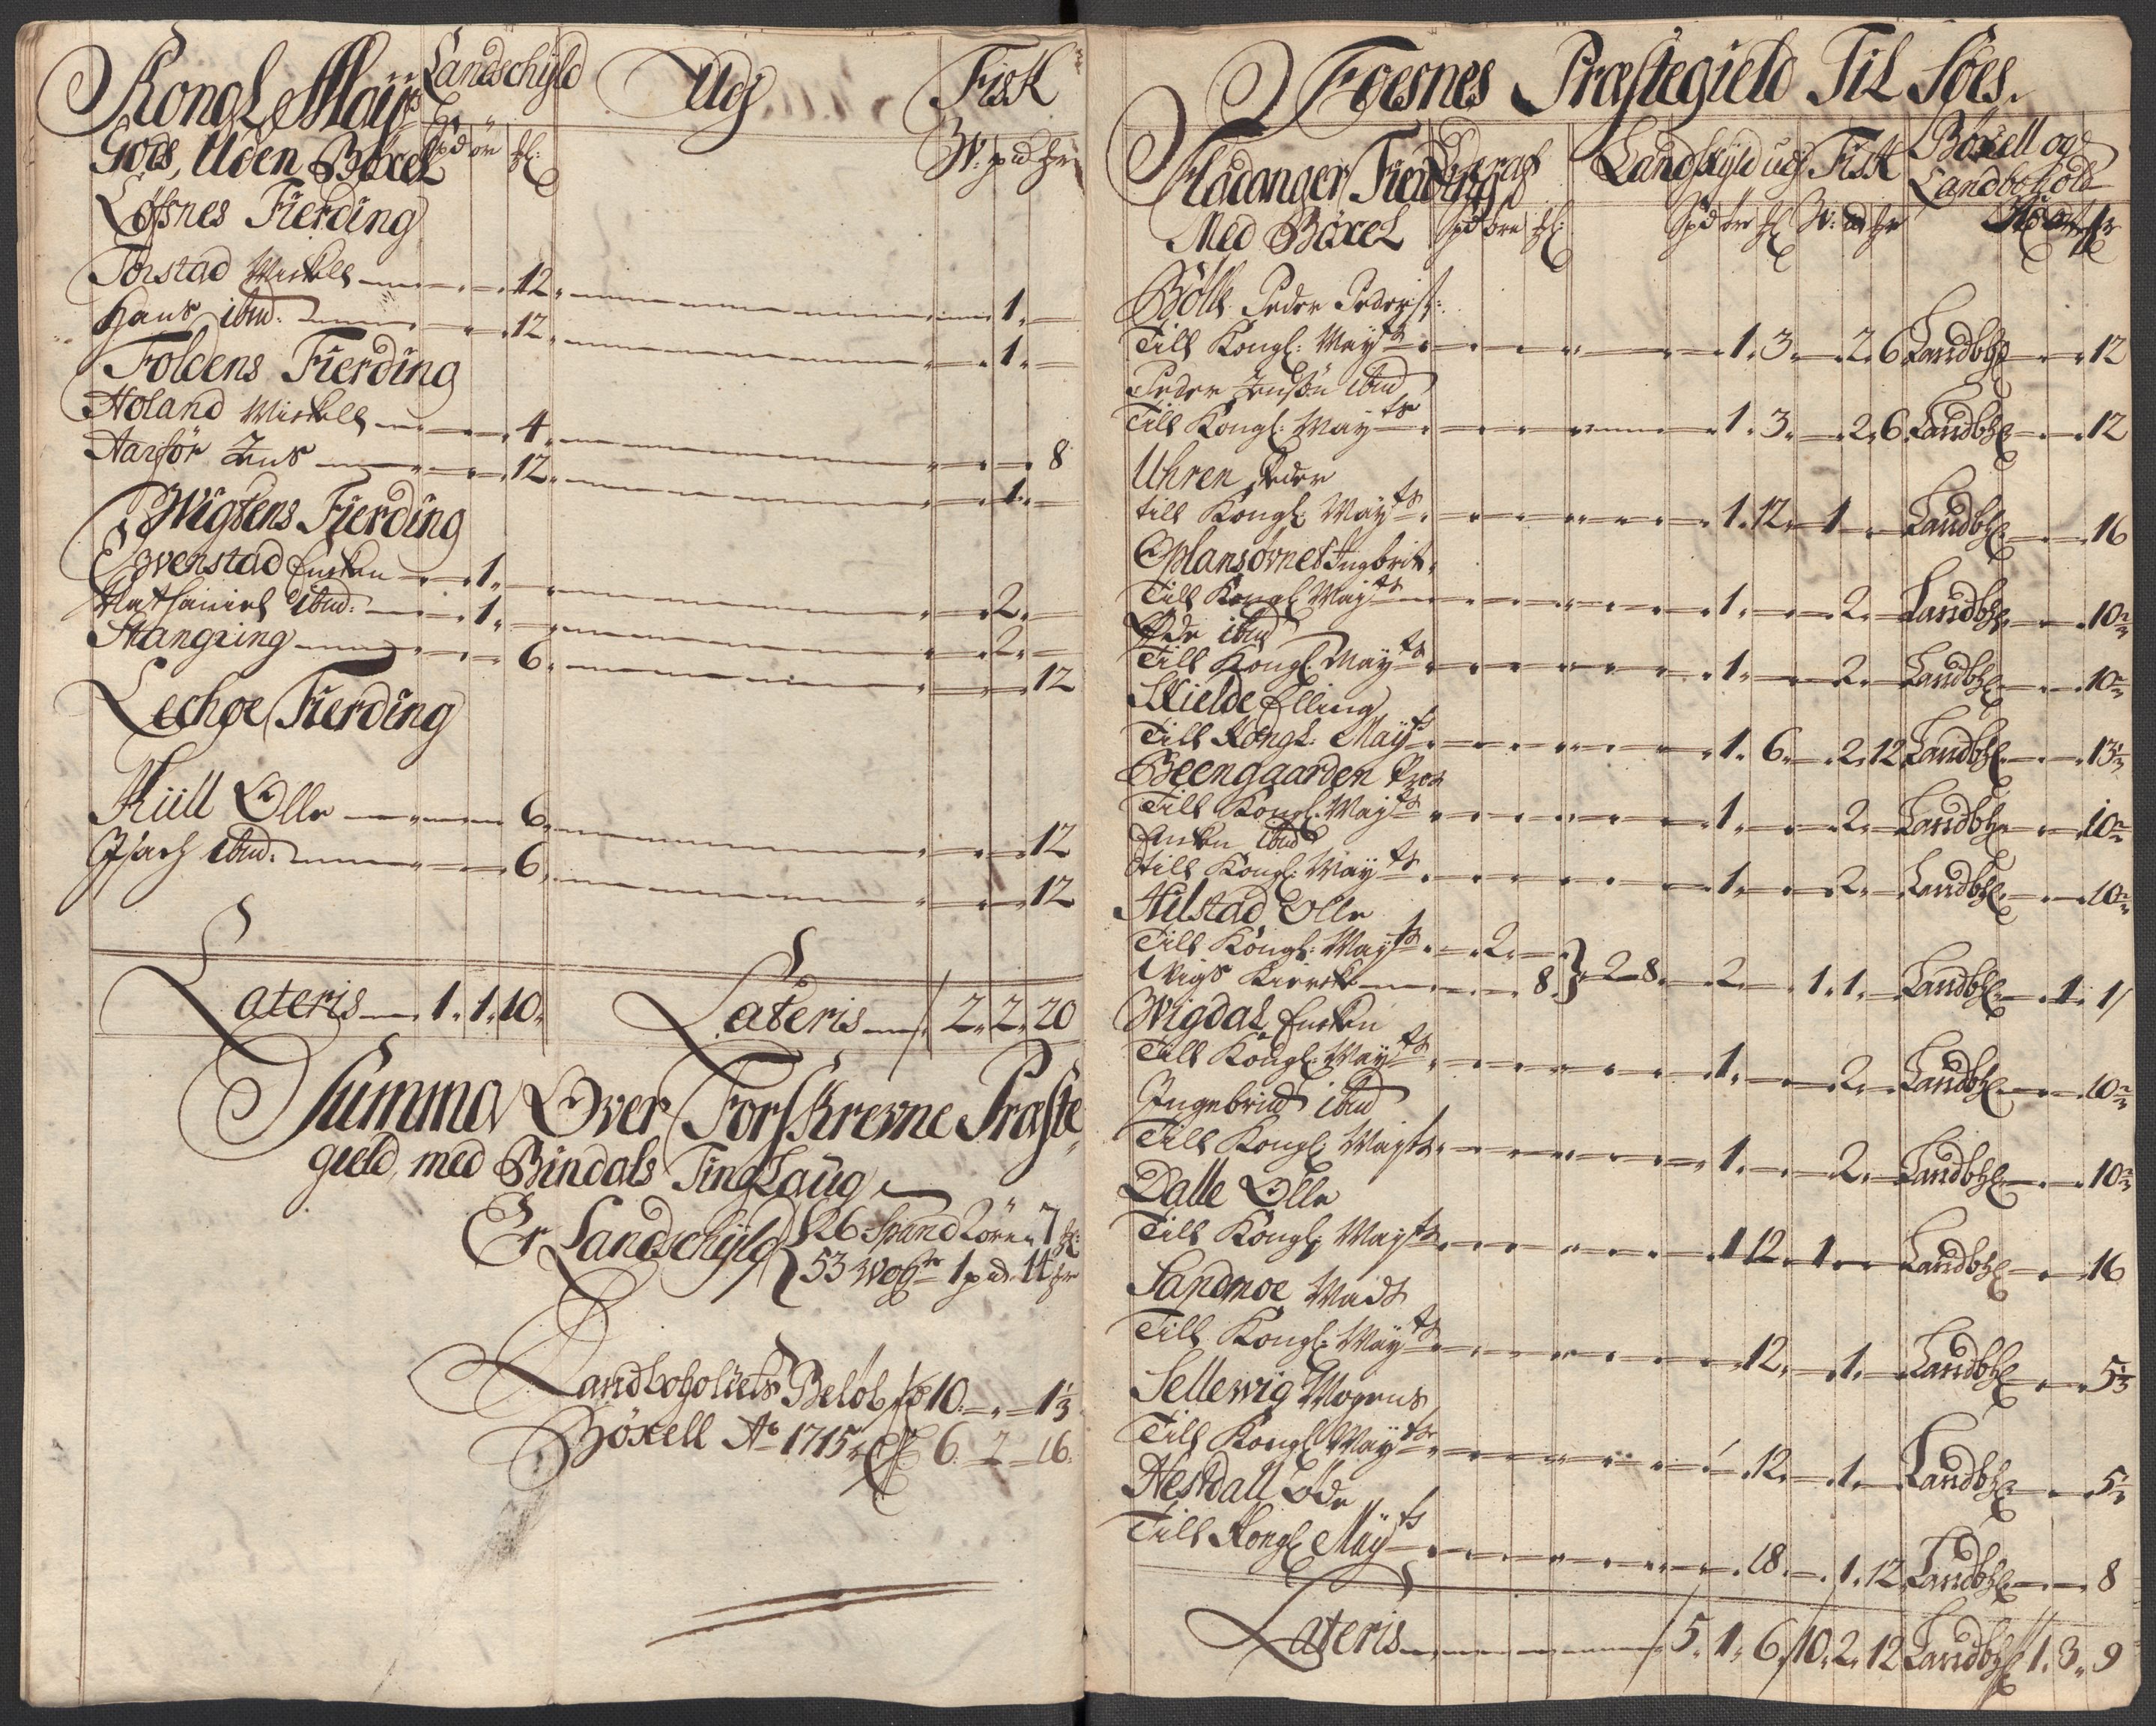 Kongl Maÿts Landschÿld Udj Fisk
Gods, Uden Böxel Spd ör W: pd
Löfsnes Fierding
Torstad Mickell 12 1
Hans ibid: 12 1
Foldens Fierding
Holand Mickell 4 8
Aarför Jens 12 1
Wigtens Fierding
Evenstad Encken 1 2
Nathaniel ibid: 1 2
Stangring 6 12
Lechöe Fierding
Kiell Olle 6 12
Isach ibid: 6 12
Lateris 1. 1. 10. Lateris 2. 2. 20
Summa Over Forskrevne Præste
gield, med Bindals Tinglaug
Er Landschÿld 26 Spand 2 ören 7
53 Woger 1 pd. 11
Landboholdets Beløb 10. 1 1/3
Böxell Ao 1715 6. 2 16.
Foesnes Præstegield Til Söes.
Fladanger Fierding Deraf Landskÿld udj Fisk Böxell og
Landbohold
Med Böxel Spd ören
Böll Peder Peders:
Till Kongl: Mayts 1. 3. 2. 6 Landbh 12
Peder Jensön ibid
Till Kongl: Mayts 1. 3. 2. 6. Landbh 12
Uhren Peder
till Kongl: Mayts 1. 12. 1 Landbh 16
Oplansovnet Ingbrit
Till Kongl Mayts 1. 2. Landbh 10 2/3
Öde ibid
Till Kongl. Mayts 1. 2. Landbh 10 2/3
Skielde Elling
Till Kongl: Mayts 1. 6. 2. 12. Landbh 13 1/3
Beengaarden
Till Kongl. Mayts 1. 2. Landbh 10 2/3
Encken ibid
till Kongl: Mayts 1. 2. Landbh 10 2/3
Hilstad Olle
Till Kongl: Mayts 2.
Wigs Kircke 8 } 2 8. 2 1. 1. Landbh 1. 1
Wigdal Encken
Till Kongl: Mayts 1. 2. Landbh 10 2/3
Ingebrict ibid
Till Kongl Mayts 1. 2. Landbh 10 2/3
Dalle Olle
Till Kongl Mayts 1 12. 1. Landbh 16
Sandmoe Madt
Till Kongl: Mayts 12. 1. Landbh 5 1/3
Sellewig Mogens
Till Kongl Mayts 12. 1. Landbh 5 1/3
Hestdall Öde
Till Kongl Mayts 18. 1. 12. Landbh 8
Lateris 5. 1. 6. 10. 2. 12 Landbh 1. 3. 9